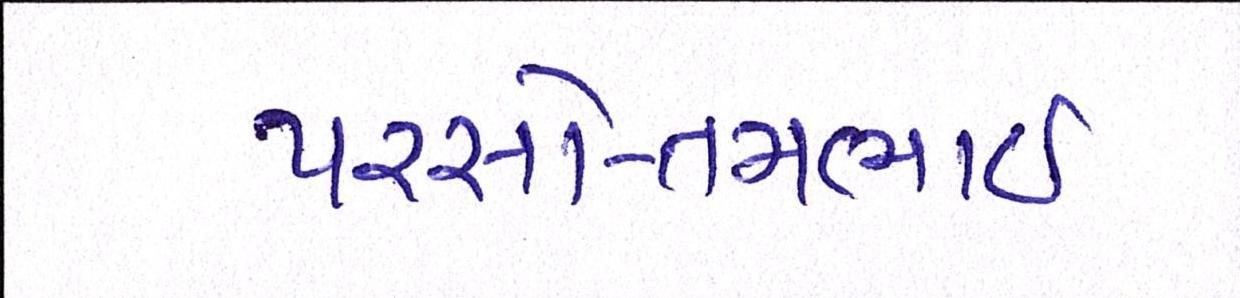 પરસોત્તમભાઈ